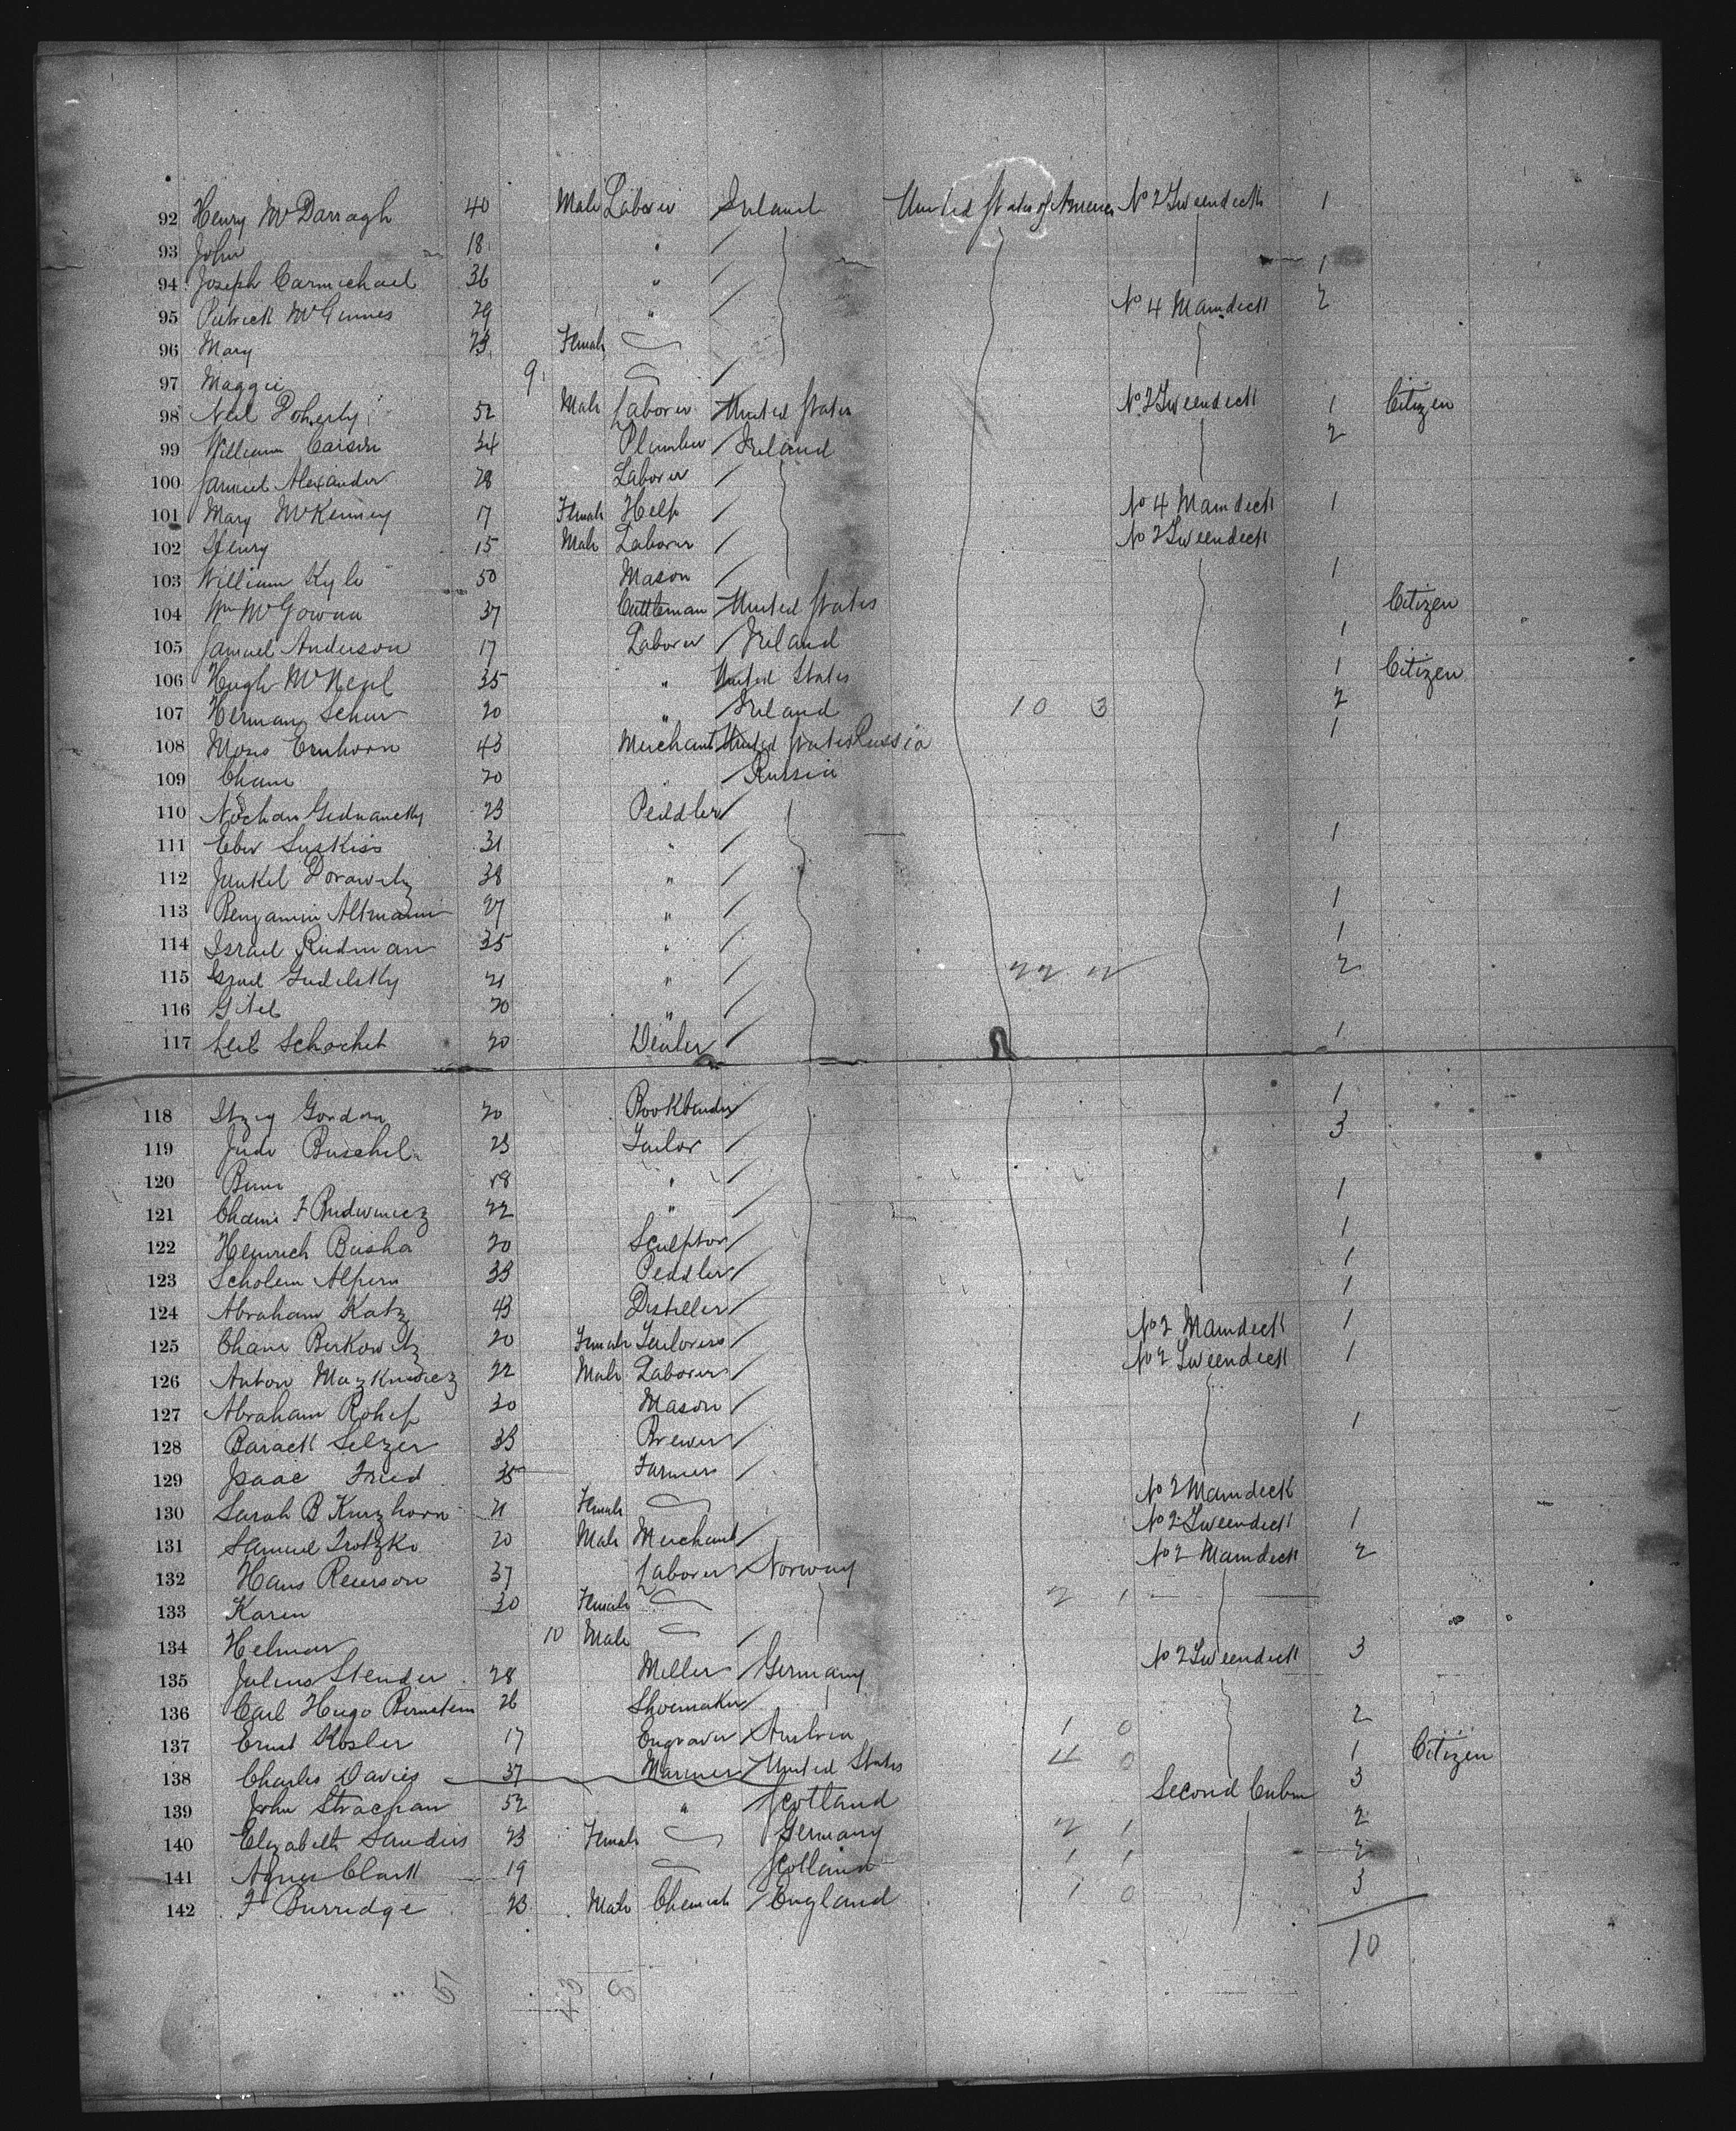 92 Henry McDarragh 40 Male Laborer Ireland United States of America No 2 Tweendeck 1
93 John 18 "
94 Joseph Carmichael 36 " 1
95 Patrick McGinnes 29 " No 4 Maindeck 2
96 Mary 23 Female
97 Maggie 9
98 Neil Doherty 52 Male Laborer United States No 2 Tweendeck 1 Citizen
99 William Carson 34 Plumber Ireland 2
100 Samuel Alexander 28 Laborer
101 Mary McKenney 17 Female Help No 4 Maindeck 1
102 Henry 15 Male Laborer No 2 Tweendeck
103 William Kyle 50 Mason 1
104 Wm McGowan 37 Cattleman United States Citizen
105 Samuel Anderson 17 Laborer Ireland 1
106 Hugh McNeil 35 " United States 1 Citizen
107 Herman Schur 20 " Ireland 10 3 2
108 Moses Ernhorn 43 Merchant United States Russia 1
109 Chane 20 " Russia
110 Nochan 23 Peddler
111 Eber Suskiss 31 " 1
112 Junkel 38 "
113 Benjamin Altmann 27 " 1
114 Israel Rudman 35 " 1
115 Israel Gudelsky 21 " 22 2
116 Gitel 20 "
117 Leib Schochet 20 Dealer 1
118 Itzig Gordon 20 Bookbinder 1
119 Jude Buschel 23 Tailor 3
120 18 "
121 22 " 1
122 Heinrich Busha 20 Sculptor 1
123 Scholem Alpern 33 Peddler 1
124 Abraham Katz 43 Distiller 1
125 Chane Berkowitz 20 Female Tailoress No 2 Maindeck 1
126 Anton 22 Male Laborer No 2 Tweendeck 1
127 Abraham 30 Mason
128 Barack Selzer 33 Brewer 1
129 Isaac Fried 35 Farmer
130 Sarah B Kurzhorn 21 Female No 2 Maindeck
131 Samuel Trotzko 20 Male Merchant No 2 Tweendeck 1
132 Hans Reierson 37 Laborer Norway No 2 Maindeck 2
133 Karen 30 Female 2 1
134 Helmar 10 Male
135 Julius Stender 28 Miller Germany No 2 Tweendeck 3
136 Carl Hugo Bernstein 26 Shoemaker
137 Ernst Kosler 17 Engraver Austria 1 0 2
138 Charles Davies 37 Mariner United States 4 0 1 Citizen
139 John Strachan 52 " Scotland Second Cabin 3
140 Elizabeth Sanders 23 Female Germany 2 1 2
141 Agnes Clark 19 Scotland 1 1 2
142 F Burridge 23 Male Chemist England 1 0 3
10